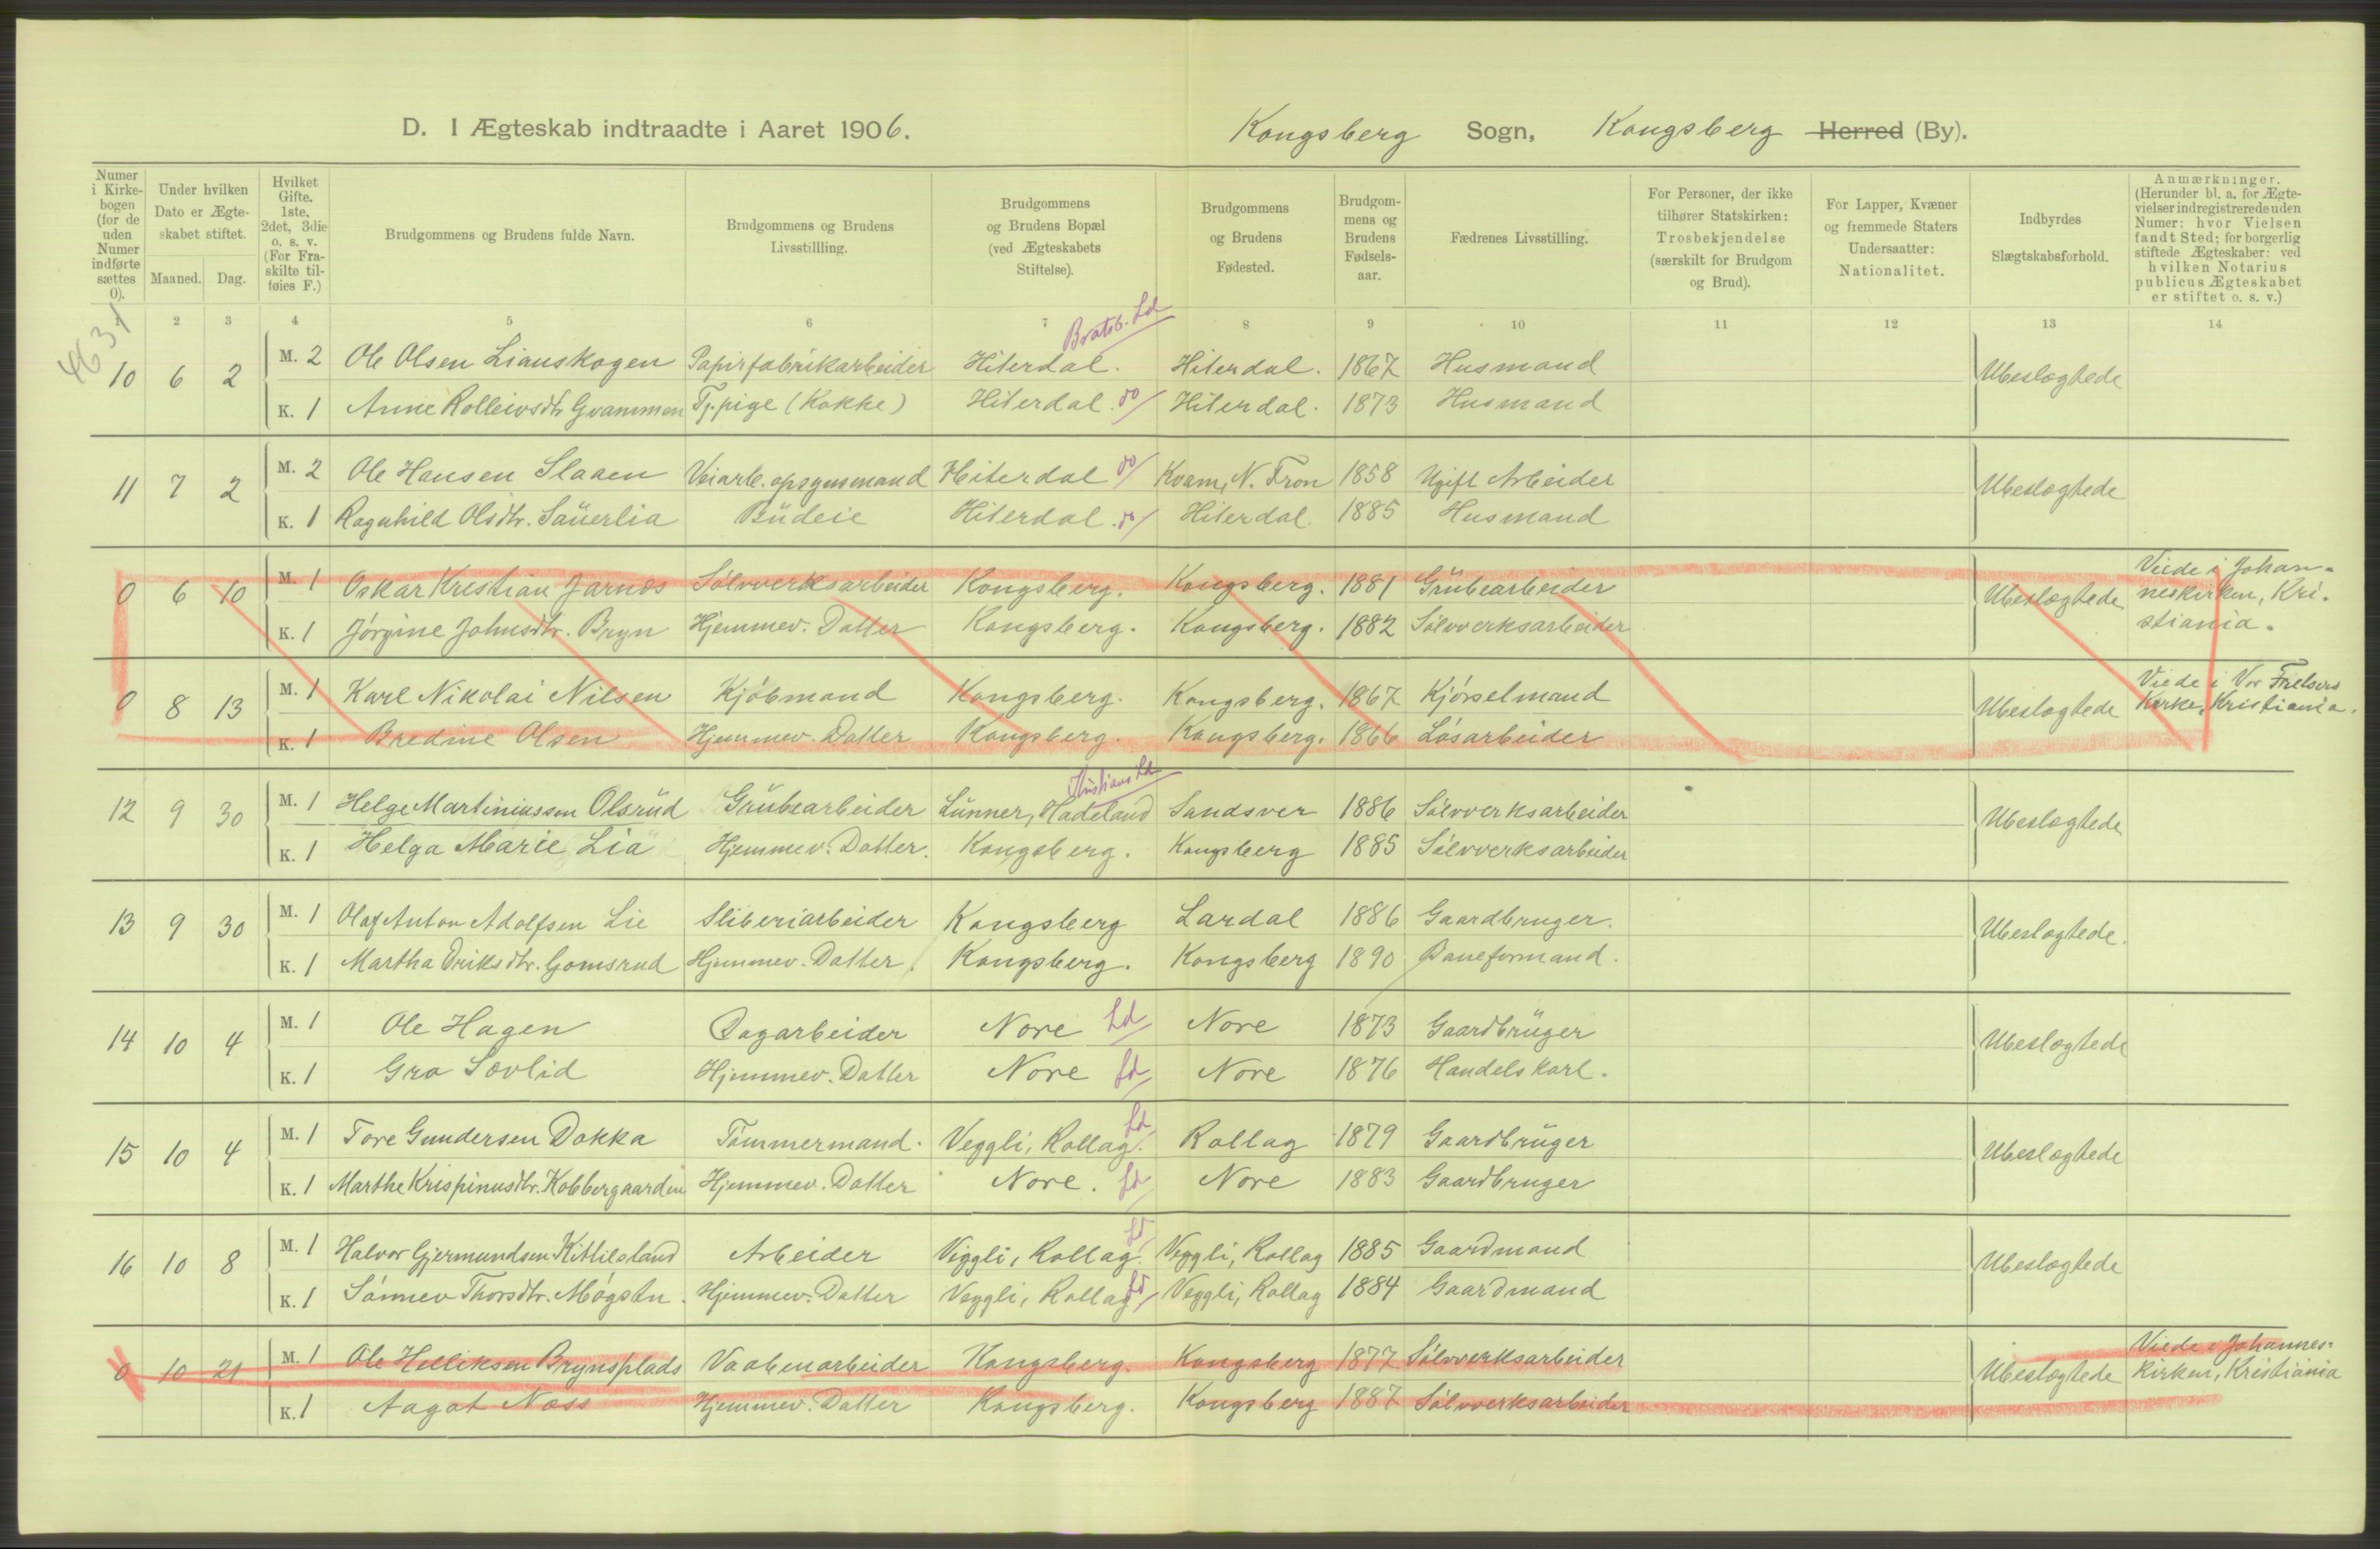 D. I Ægteskab indtraadte i Aaret 1906.
Kongsberg Sogn, Kongsberg Herred (By).
Numer i Kirke-bogen (for de uden Numer indførte sættes 0).
Under hvilken Dato er Ægte-skabet stiftet.
Maaned. Dag.
Hvilket Gifte. 1ste, 2det, 3die o. s. v. (For Fra-skilte til-føies F.)
Brudgommens og Brudens fulde Navn.
Brudgommens og Brudens Livsstillling.
Brudgommens og Brudens Bopæl (ved Ægteskabets Stiftelse).
Brudgommens og Brudens Fødested.
Brudgom-mens og Brudens Fødsels-aar.
Fædrenes Livsstilling.
For Personer, der ikke tilhører Statskirken: Trosbekjendelse (særskilt for Brudgom og Brud).
For Lapper, Kvæner og fremmede Staters Undersaatter: Nationalitet.
Indbyrdes Slægtskabsforhold.
Anmærkninger. (Herunder bl. a. for Ægte-vielser indregistrerede uden Numer: hvor Vielsen fandt Sted; for borgerlig stiftede Ægteskaber: ved hvilken Notarius publicus Ægteskabet er stiftet o. s. v.)
1 2 3 4 5 6 7 8 9 10 11 12 13 14
4631
Bratsb. Ld
10 6 2 M. 2 Ole Olsen Lianskogen Papirfabrikarbeider Hiterdal. Hiterdal. 1867 Husmand Ubeslægtede
K. 1 Anne Rolleivsdtr Gvammen Tj. pige (Kokke) Hiterdal. do Hiterdal. 1873 Husmand
11 7 2 M. 2 Ole Hansen Slaaen Veiarb. opsynsmand Hiterdal do Kvam, N. Fron 1858 Ugift Arbeider Ubeslægtede
K. 1 Ragnhild Olsdtr. Saüerlia Büdeie Hiterdal. do Hiterdal. 1885 Husmand
0 6 10 M. 1 Oskar Kristian Jarnæs Sølvverksarbeider Kongsberg. Kongsberg. 1881 Grübearbeider Ubeslægtede Viede i Johan-
neskirken, Kri-
K. 1 Jørgine Johnsdtr. Bryn Hjemmev. Datter Kongsberg. Kongsberg. 1882 Sølvverksarbeider stiania.
0 8 13 M. 1 Karl Nikolai Nilsen Kjøbmand Kongsberg. Kongsberg. 1867 Kjørselmand Ubeslægtede Viede i Vor Frelsers
Kirke, Kristiania.
K. 1 Bredine Olsen Hjemmev. Datter Kongsberg. Kongsberg. 1866 Løsarbeider
Kristians Ld
12 9 30 M. 1 Helge Martiniussen Olsrüd Grübearbeider Lünner, Hadeland Sandsver 1886 Sølvverksarbeider Ubeslægtede
K. 1 Helga Marie Lia Hjemmev. Datter. Kongsberg. Kongsberg 1885 Sølvverksarbeider
13 9 30 M. 1 Olaf Anton Adolfsen Lie Sliberiarbeider Kongsberg Lardal 1886 Gaardbruger. Ubeslægtede.
K. 1 Martha Eriksdtr. Gomsrud Hjemmev. Datter. Kongsberg. Kongsberg 1890 Baneformand.
14 10 4 M. 1 Ole Hagen Dagarbeider Nore Ld Nore 1873 Gaardbrüger Ubeslægtede
K. 1 Gro Sevlid Hjemmev. Datter Nore Ld Nore 1876 Handelskarl.
15 10 4 M. 1 Tore Gundersen Dokka Tømmermand. Veggli, Rollag. Ld Rollag 1879 Gaardbrüger Ubeslægtede
K. 1 Marthe Krispinusdtr. Kobbergaarden Hjemmev. Datter Nore. Ld Nore 1883 Gaardbruger
16 10 8 M. 1 Halvor Gjermundsen Kittilsland Arbeider Veggli, Rollag. Ld Veggli, Rollag 1885 Gaardmand Ubeslægtede
K. 1 Sønnev Thorsdtr. Møgstn. Hjemmev. Datter Veggli, Rollag Ld Veggli, Rollag 1884 Gaardmand
0 10 21 M. 1 Ole Helliksen Brynsplads Vaabenarbeider Kongsberg. Kongsberg 1877 Sølvverksarbeider Ubeslægtede Viede i Johannes-
kirken, Kristiania
K. 1 Aagot Næss Hjemmev. Datter Kongsberg. Kongsberg 1887 Sølvverksarbeider